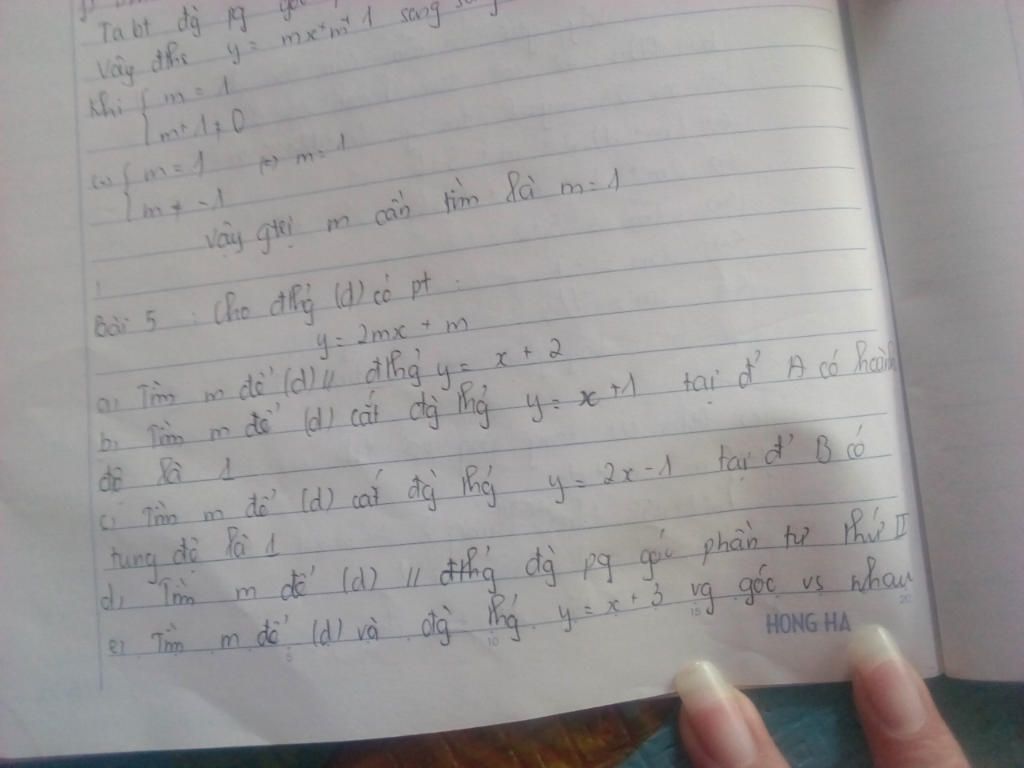 Ta bt đg pg góc
Vậy đths y = mx+m+1 song song
Khi { m = 1
m+1≠0
(=) { m = 1 (=) m = 1
m ≠ -1
Vậy gtrị m cần tìm là m=1
Bài 5 : Cho đthg̉ (d) có pt :
y = 2mx + m
a, Tìm m để (d) // đthg̉ y = x + 2
b, Tìm m để (d) cắt đg̀ thg̉ y = x +1 tại đ' A có hoành
độ là 1
c, Tìm m để (d) cắt đg̀ thg̉ y = 2x -1 tại đ' B có
tung độ là 1
d, Tìm m để (d) // đthg̉ đg̀ pg góc phần tư thứ II
e, Tìm m để (d) và đg̀ thg̉ y = x + 3 vg góc vs nhau
5 10 15 20
HONG HA